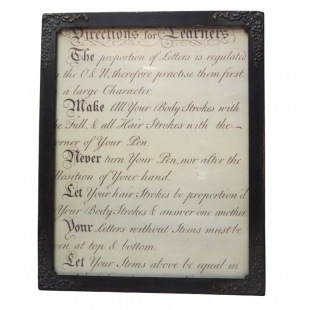 Directions for Learners
The proportion of Letters is regulated
the O & N, therefore practise them first
a large Character.
Make All Your Body Strokes with
e Full, & all Hair Strokes with the
orner of Your Pen.
Never turn Your Pen, nor alter the
Position of Your hand.
Let Your hair Strokes be proportion'd
Your Body Strokes & answer one another.
Your Letters without Items must be
en at top & bottom.
Let Your Items above be equal in